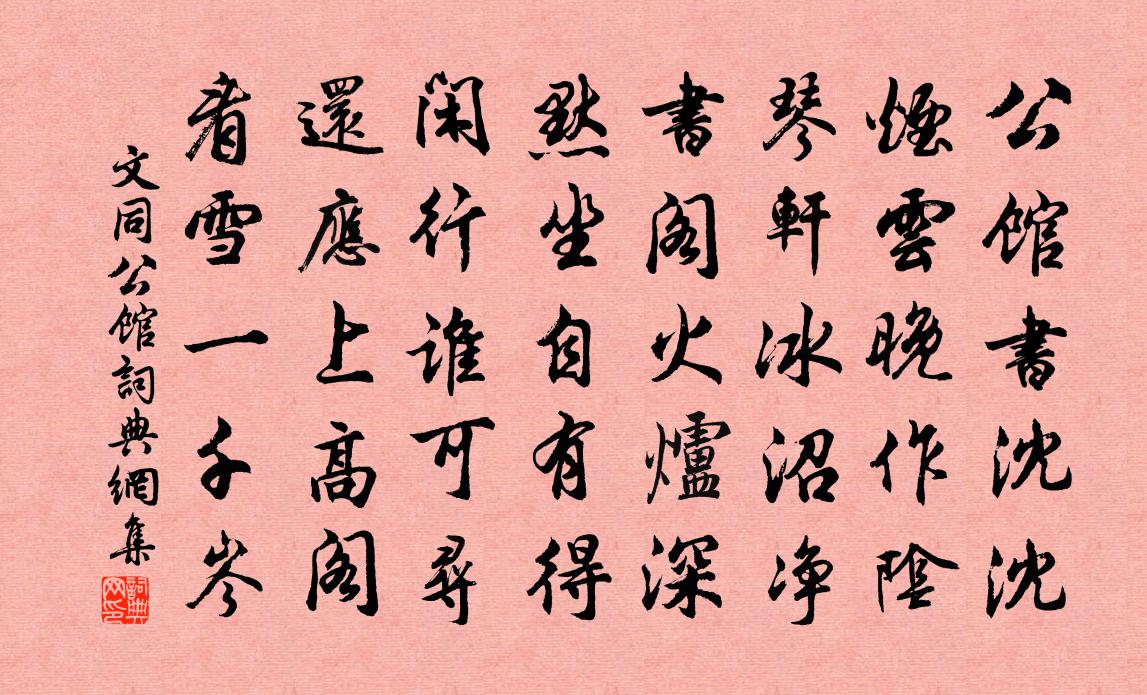 公館書沈沈
煙雲晚作陰
琴軒冰沼净
書閣火爐深
默坐自有得
閑行誰可尋
還應上高閣
看雪一千岑
文同公館詞典網集
詞典网印